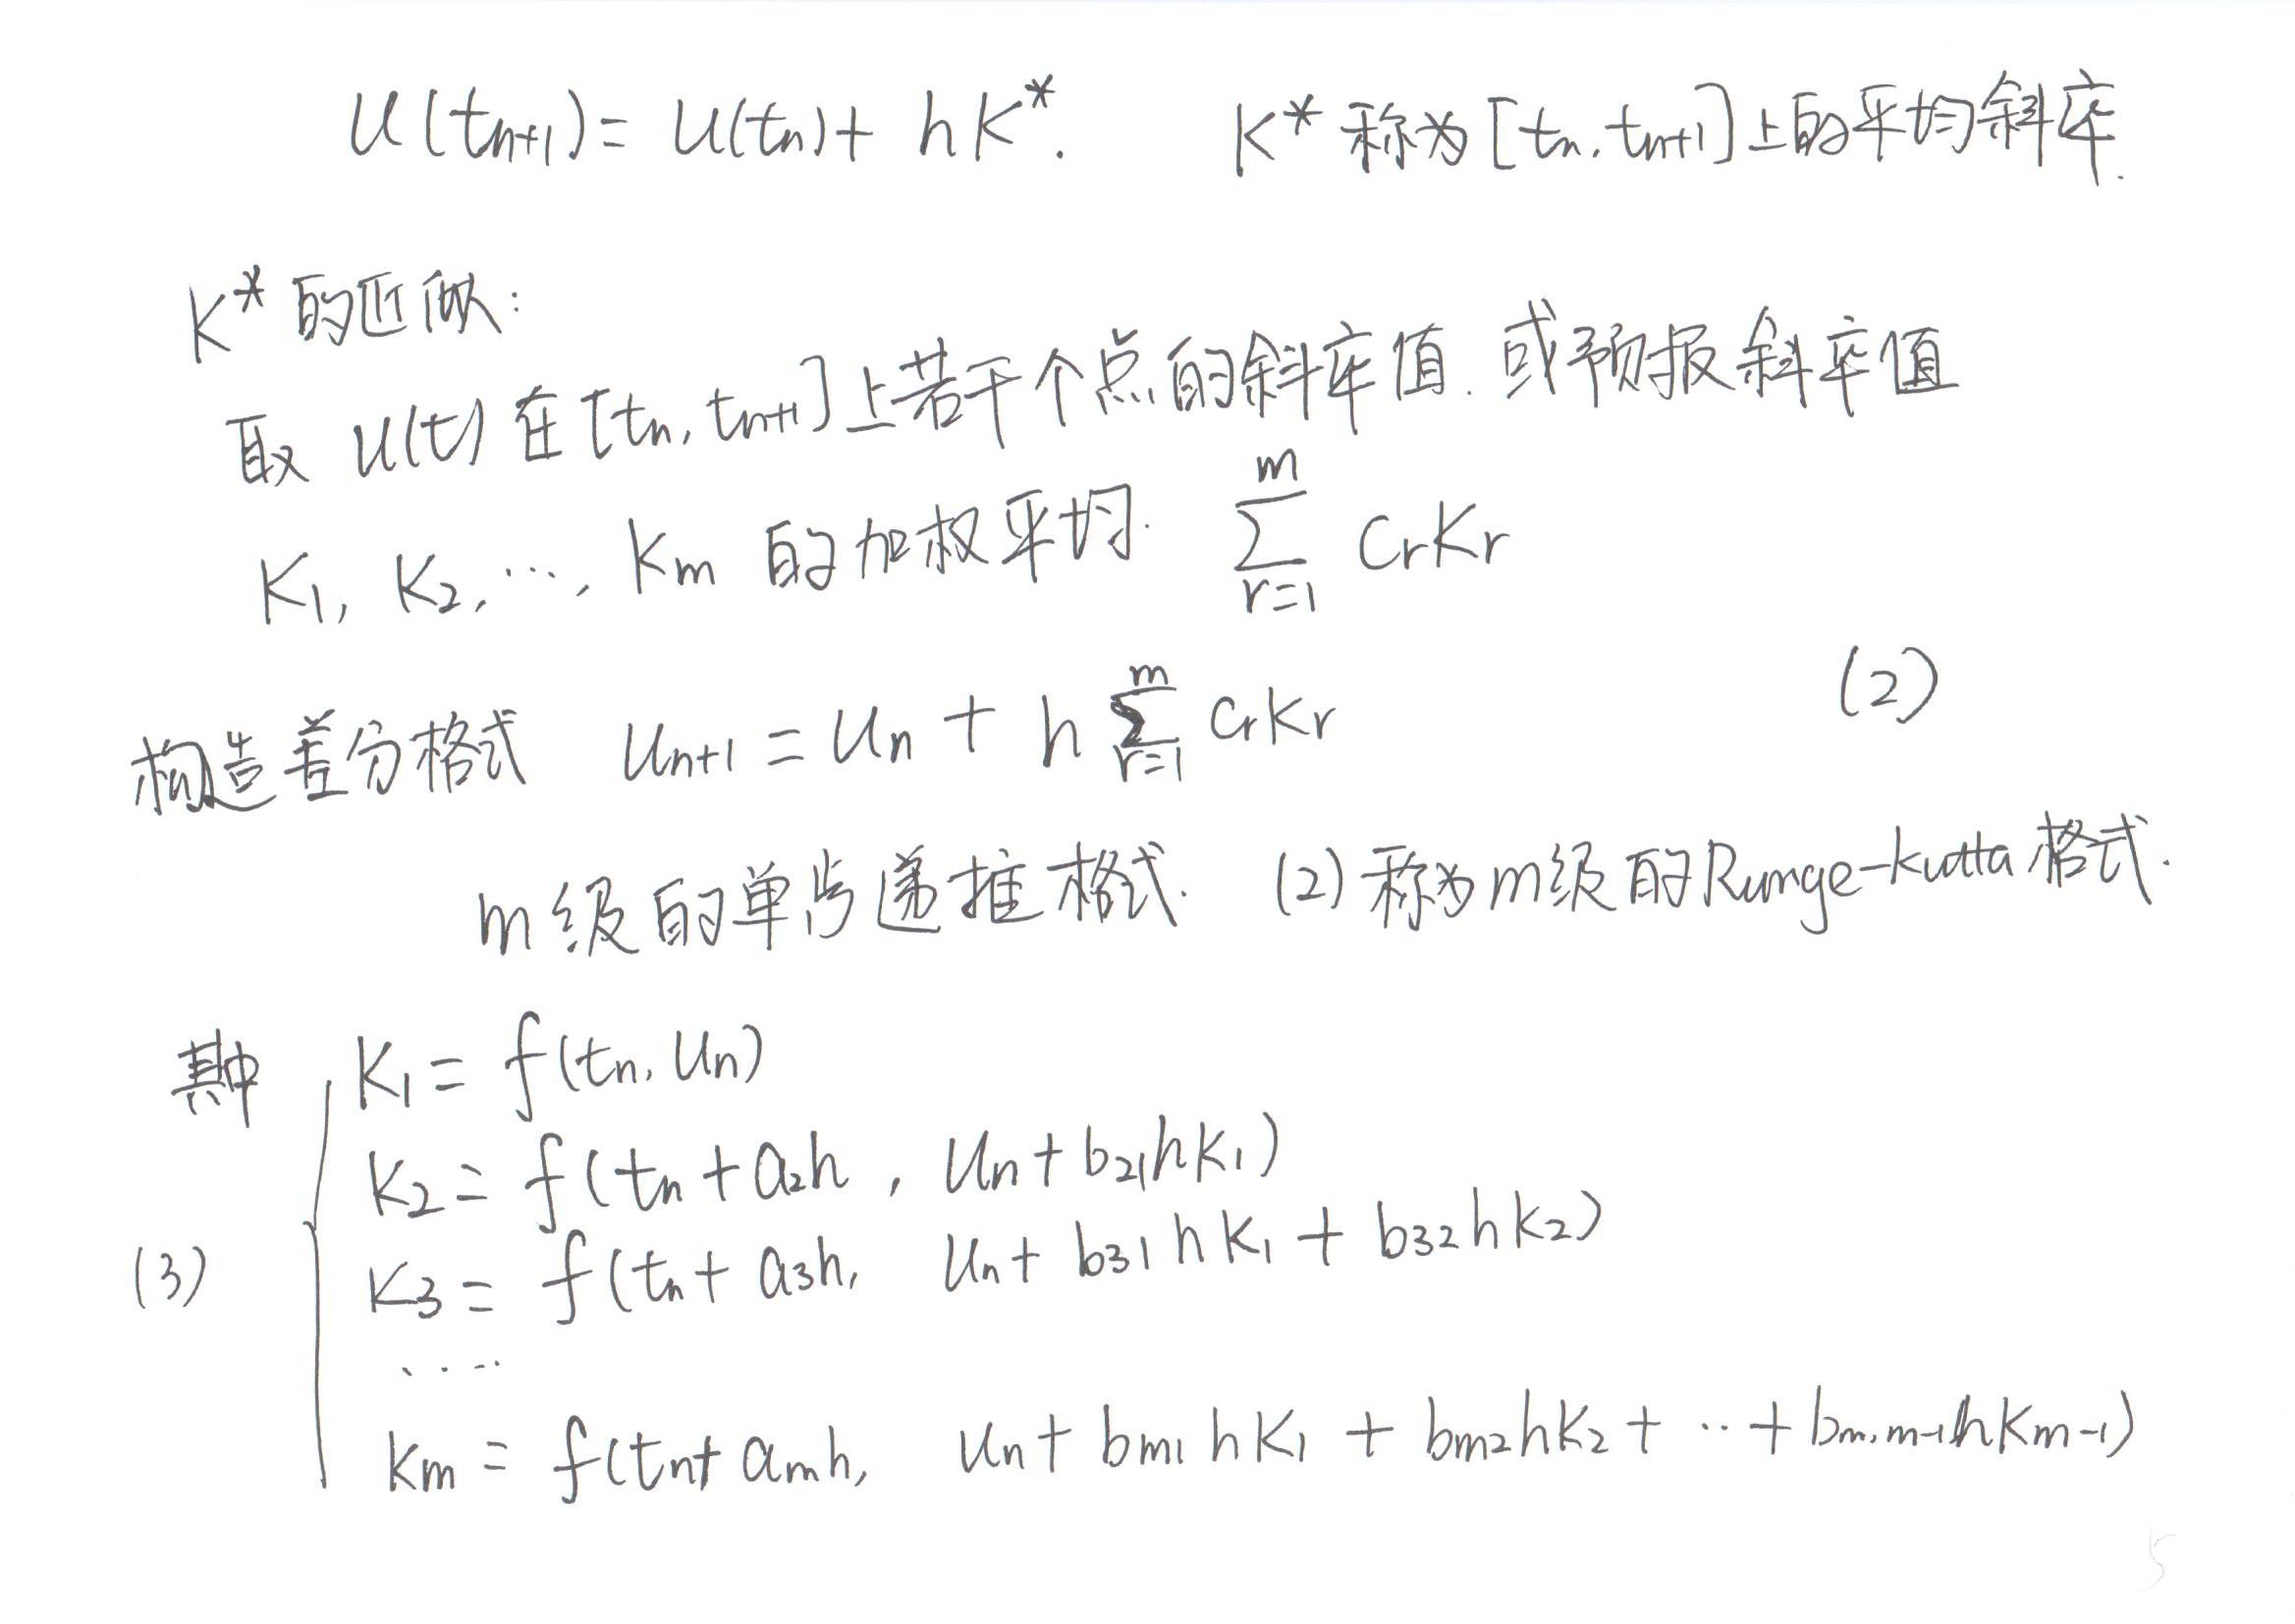 u(tₙ₊₁) = u(tₙ) + hK*. K* 称为 [tₙ, tₙ₊₁] 上的平均斜率.
K* 的近似:
取 u(t) 在 [tₙ, tₙ₊₁] 上若干个点的斜率值. 或预报斜率值
K₁, K₂, ⋯, Kₘ 的加权平均. ∑_{r=1}^{m} CᵣKᵣ
构造差分格式 uₙ₊₁ = uₙ + h ∑_{r=1}^{m} CᵣKᵣ (2)
m级的单步递推格式. (2) 称为m级的Runge-kutta格式.
其中 K₁ = f(tₙ, uₙ)
K₂ = f(tₙ + a₂h, uₙ + b₂₁hK₁)
(3) K₃ = f(tₙ + a₃h, uₙ + b₃₁hK₁ + b₃₂hK₂)
.....
Kₘ = f(tₙ + aₘh, uₙ + bₘ₁hK₁ + bₘ₂hK₂ + ⋯ + b_{m,m-1}hK_{m-1})
5